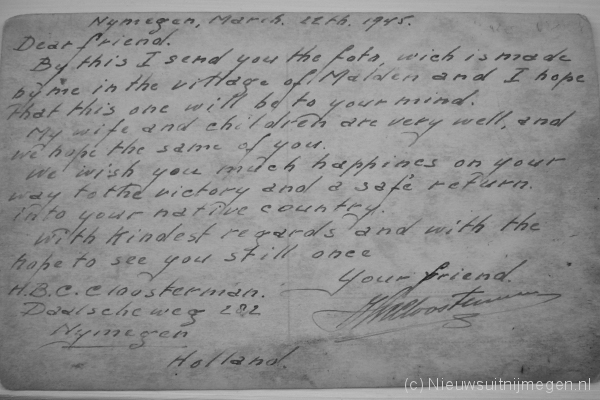 Nymegen, March. 22th. 1945.
Dear friend.
By this I send you the foto, wich is made
by me in the village of Malden and I hope
that this one will be to your mind.
My wife and children are very well, and
we hope the same of you.
We wish you much happines on your
way to the victory and a safe return.
into your native country.
With kindest regards and with the
hope to see you still once
Your friend.
H.B.C. Cloosterman.
Daalscheweg 282
Nymegen
Holland.
(c) Nieuwsuitnijmegen.nl